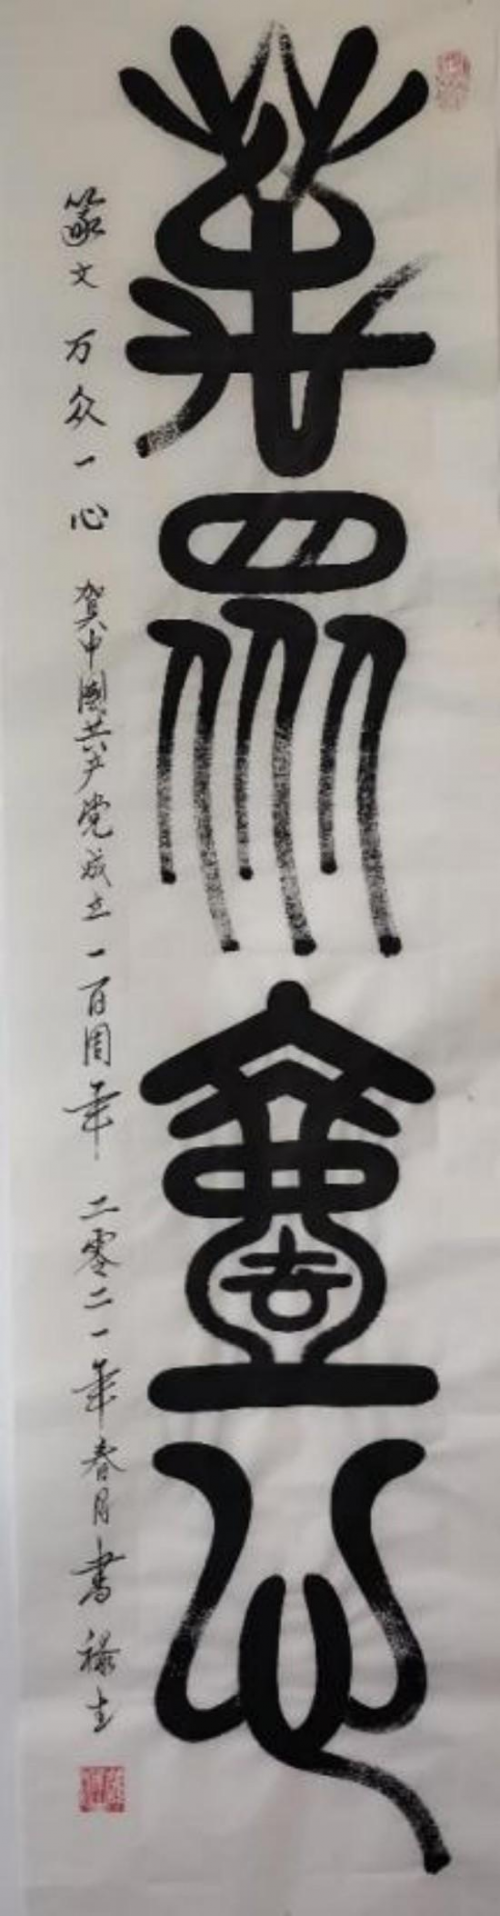 萬眾壹心
篆文 万众一心 贺中国共产党成立一百周年 二零二一年春月书 禄生